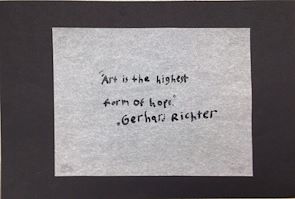 "Art is the highest
form of hope."
-Gerhard Richter